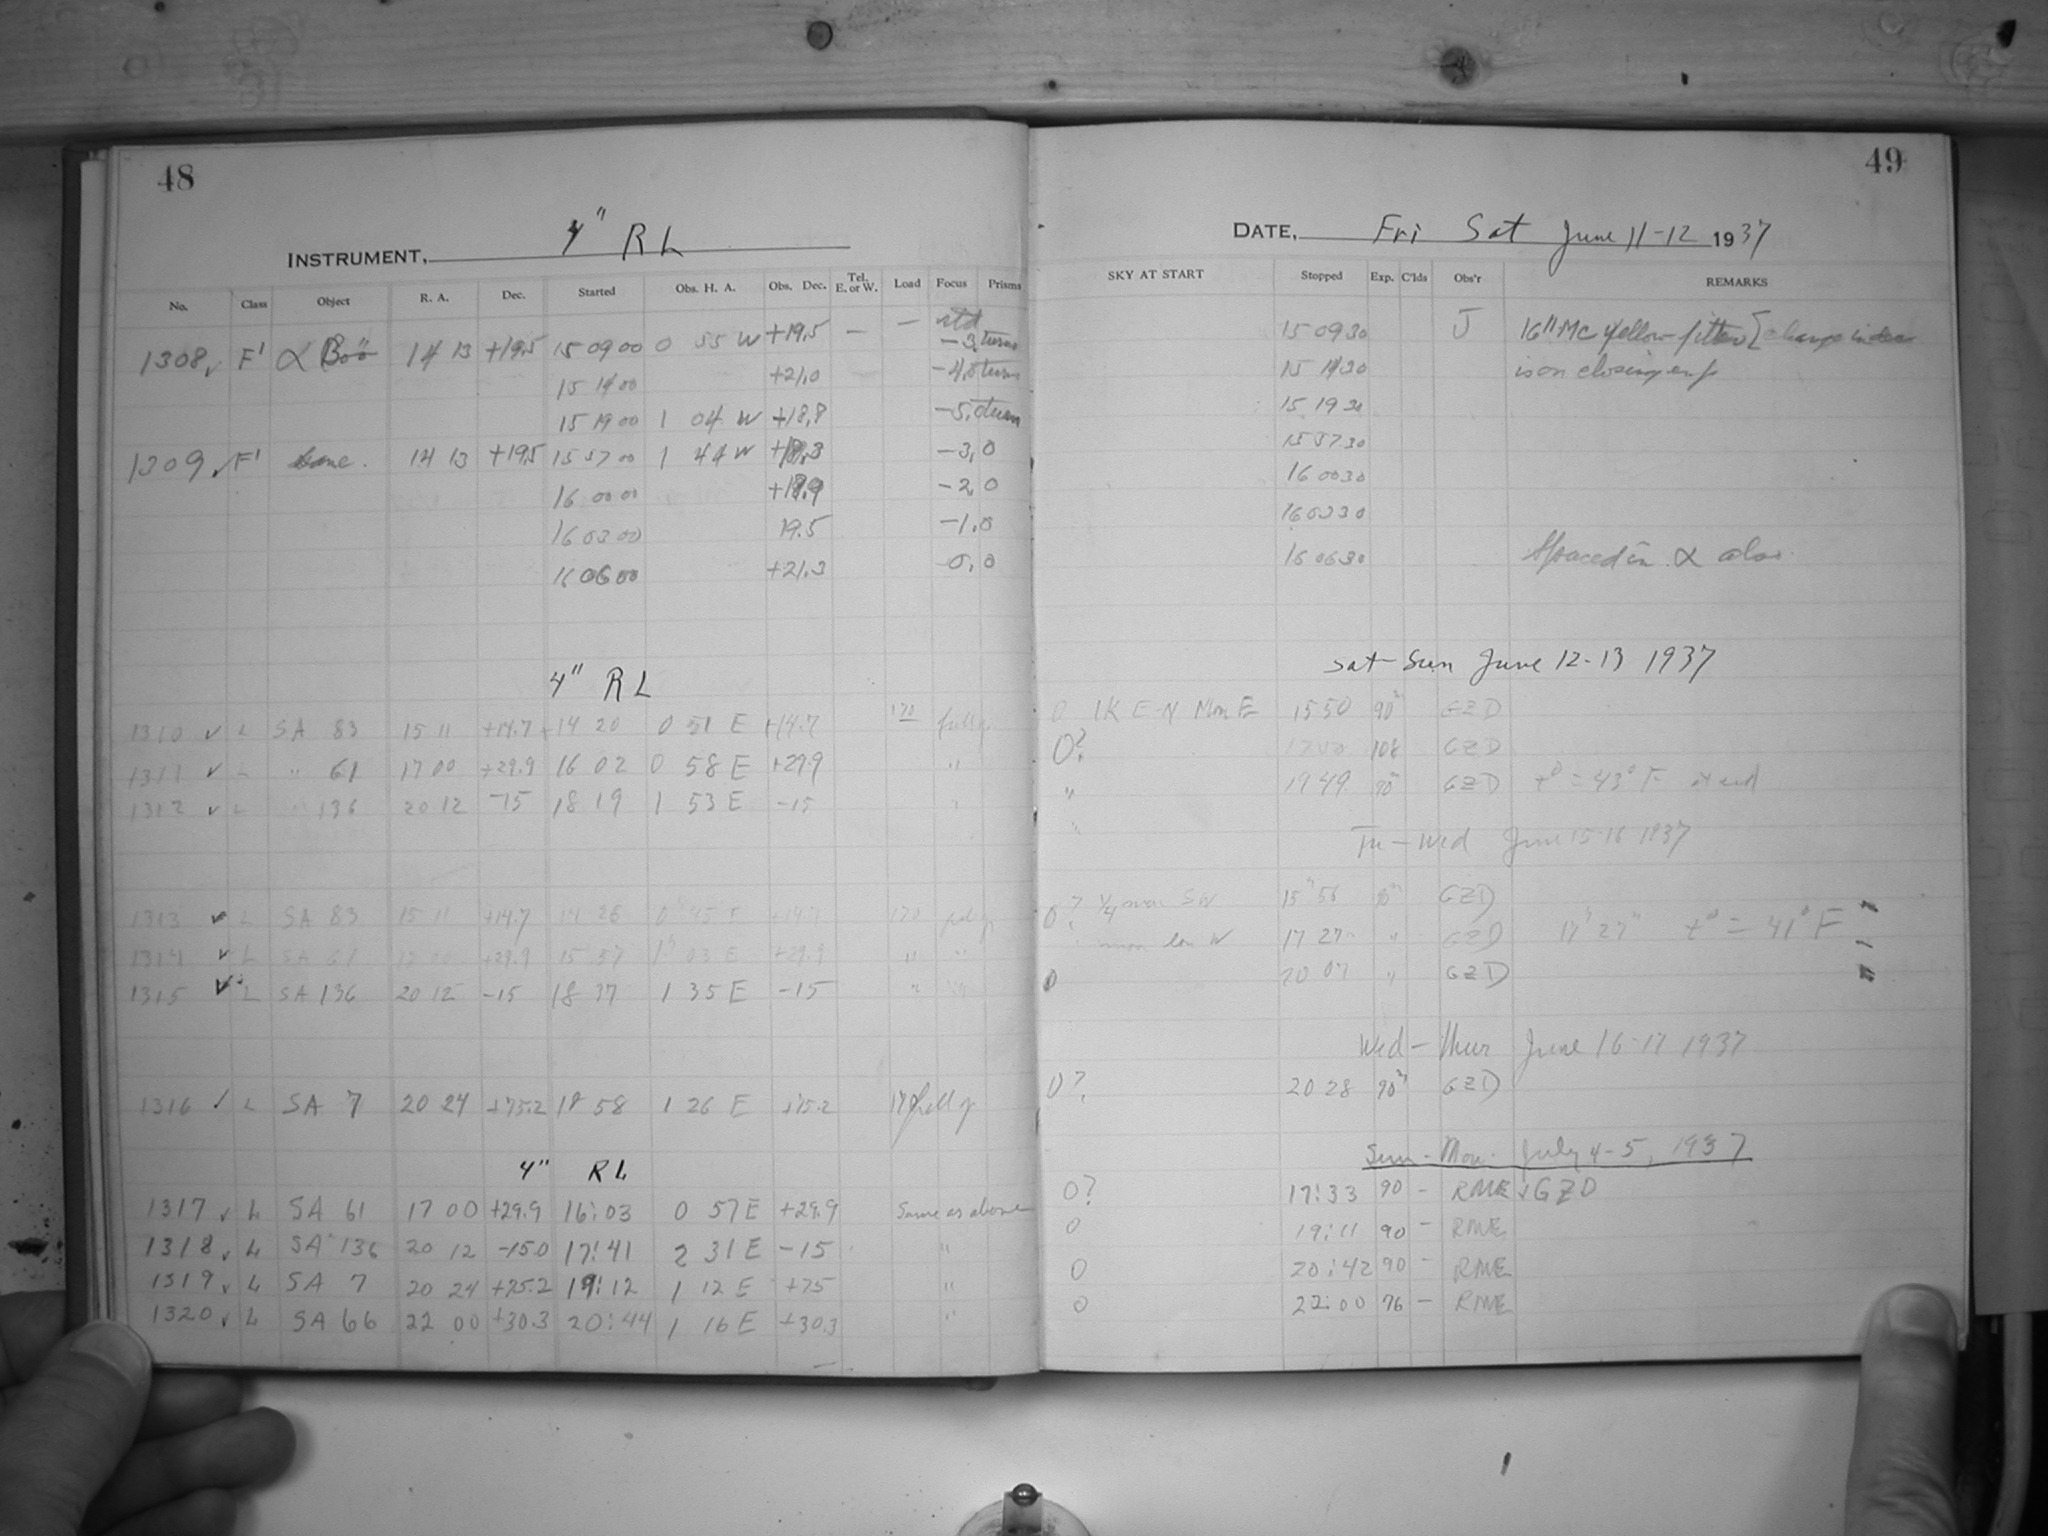 48
INSTRUMENT, 4" RL
No. Class Object R. A. Dec. Started Obs. H. A. Obs. Dec. Tel. E. or W. Load Focus Prisms
1308 ✓ F' α Boo 14 13 +19.5 15 09 00 0 55 W +19.5 — — std -3. turns
15 14 00 +21.0 -4.0 turns
15 19 00 1 04 W +18.8 -5.0 turns
1309 ✓ F' 14 13 +19.5 15 57 00 1 44 W -3.0
16 00 00 -2.0
16 03 00 19.5 -1.0
16 06 00 +21.3 0.0
4" RL
1310 ✓ L SA 83 15 11 +14.7 14 20 0 51 E +14.7 170
1311 ✓ L " 61 17 00 +29.9 16 02 0 58 E +29.9 "
1312 ✓ L " 136 20 12 -15 18 19 1 53 E -15 "
1313 ✓ L SA 83 15 11 +14.7 14 26 0 45 E +14.7 170
1314 ✓ L SA 61 17 00 +29.9 15 57 1 03 E +29.9 " "
1315 ✓ L SA 136 20 12 -15 18 37 1 35 E -15 " "
1316 ✓ L SA 7 20 24 +75.2 18 58 1 26 E +75.2 170
4" RL
1317 ✓ L SA 61 17 00 +29.9 16:03 0 57 E +29.9 Same as above
1318 ✓ L SA 136 20 12 -15.0 17:41 2 31 E -15 "
1319 ✓ L SA 7 20 24 +75.2 19:12 1 12 E +75 "
1320 ✓ L SA 66 22 00 +30.3 20:44 1 16 E +30.3 "
49
DATE, Fri Sat June 11-12 1937
SKY AT START Stopped Exp. C'lds Obs'r REMARKS
15 09 30 J 16" Mc Yellow filter
15 14 30 is on closing end
15 19 30
15 57 30
16 00 30
16 03 30
16 06 30 α also
Sat-Sun June 12-13 1937
0 1K E-N Mon E 15 50 90m GZD
0? 108 GZD
" 19 49 90m GZD t° = 43° F at end
Tu-Wed June 15-16 1937
0? 1/4 moon SW 15 56 90m GZD
moon low W 17 27 " GZD 17h 27m t° = 41° F
0 20 07 " GZD
Wed-Thur June 16-17 1937
0? 20 28 90m GZD
Sun-Mon. July 4-5, 1937
0? 17:33 90 - RME + GZD
0 19:11 90 - RME
0 20:42 90 - RME
0 22:00 76 - RME